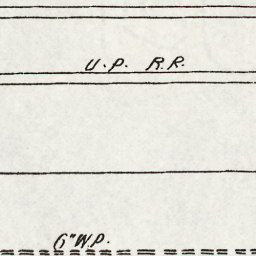 U.P. R.R.
6" W.P.